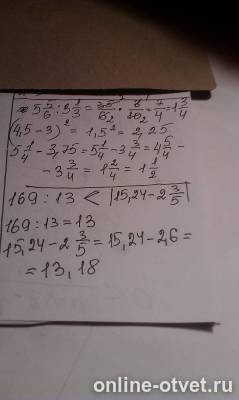 = 5 5/6 : 3 1/3 = 35/6 2 · 3/10 2 = 7/4 = 1 3/4
(4,5 - 3)² = 1,5² = 2,25
5 1/4 - 3,75 = 5 1/4 - 3 3/4 = 4 5/4 -
- 3 3/4 = 1 2/4 = 1 1/2
169 : 13 < |15,24 - 2 3/5|
169 : 13 = 13
15,24 - 2 3/5 = 15,24 - 2,6 =
= 13,18
online-otvet.ru